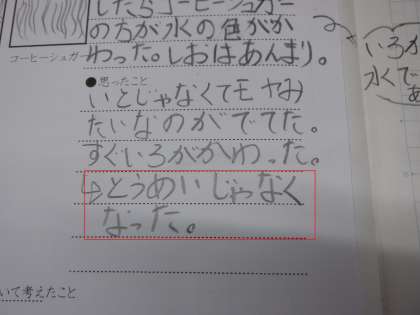 したらコーヒーシュガー
の方が水の色がか
わった。しおはあんまり。
コーヒーシュガー
●思ったこと
いとじゃなくてモヤみ
たいなのがでてた。
すぐいろがかわった。
→とうめいじゃなく
なった。
いて考えたこと
いろか
水くて
あ